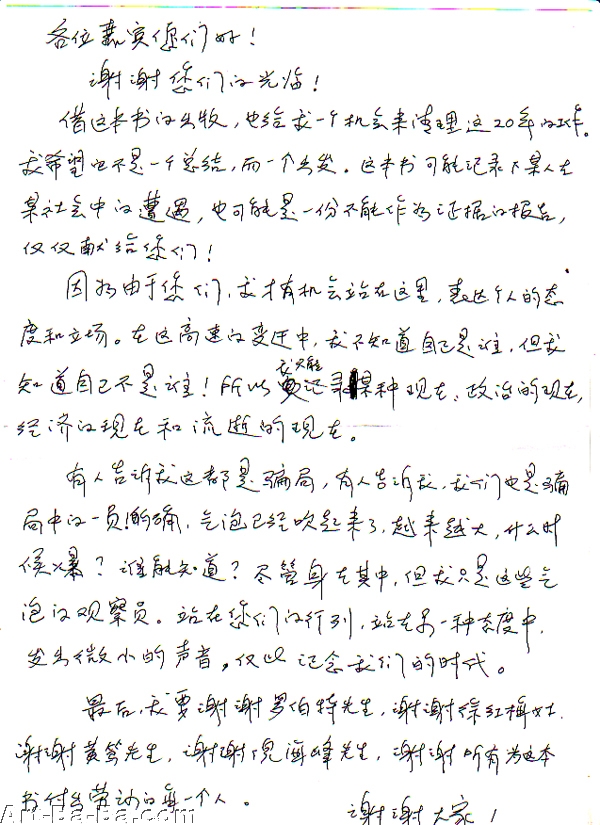 各位嘉宾您们好!
谢谢您们的光临!
借这本书的出版,也给我一个机会来清理这20年的工作。
我希望也不是一个总结,而一个出发。这本书可能记录下某人在
某社会中的遭遇,也可能是一份不能作为证据的报告,
仅仅献给您们!
因为由于您们,我才有机会站在这里,表达个人的态
度和立场。在这高速的变迁中,我不知道自己是谁,但我
知道自己不是谁!所以我只能记录某种现在、政治的现在,
经济的现在和流逝的现在。
有人告诉我这都是骗局,有人告诉我,我们也是骗
局中的一员!的确,气泡已经吹起来了,越来越大,什么时
候爆?谁能知道?尽管身在其中,但我只是这些气
泡的观察员。站在您们的行列,站在另一种态度中,
发出微小的声音,仅以记念我们的时代。
最后,我要谢谢罗伯特先生,谢谢徐红梅女士,
谢谢黄笃先生,谢谢倪海峰先生,谢谢所有为这本
书付出劳动的每一个人。
谢谢大家!
Art-Ba-Ba.com